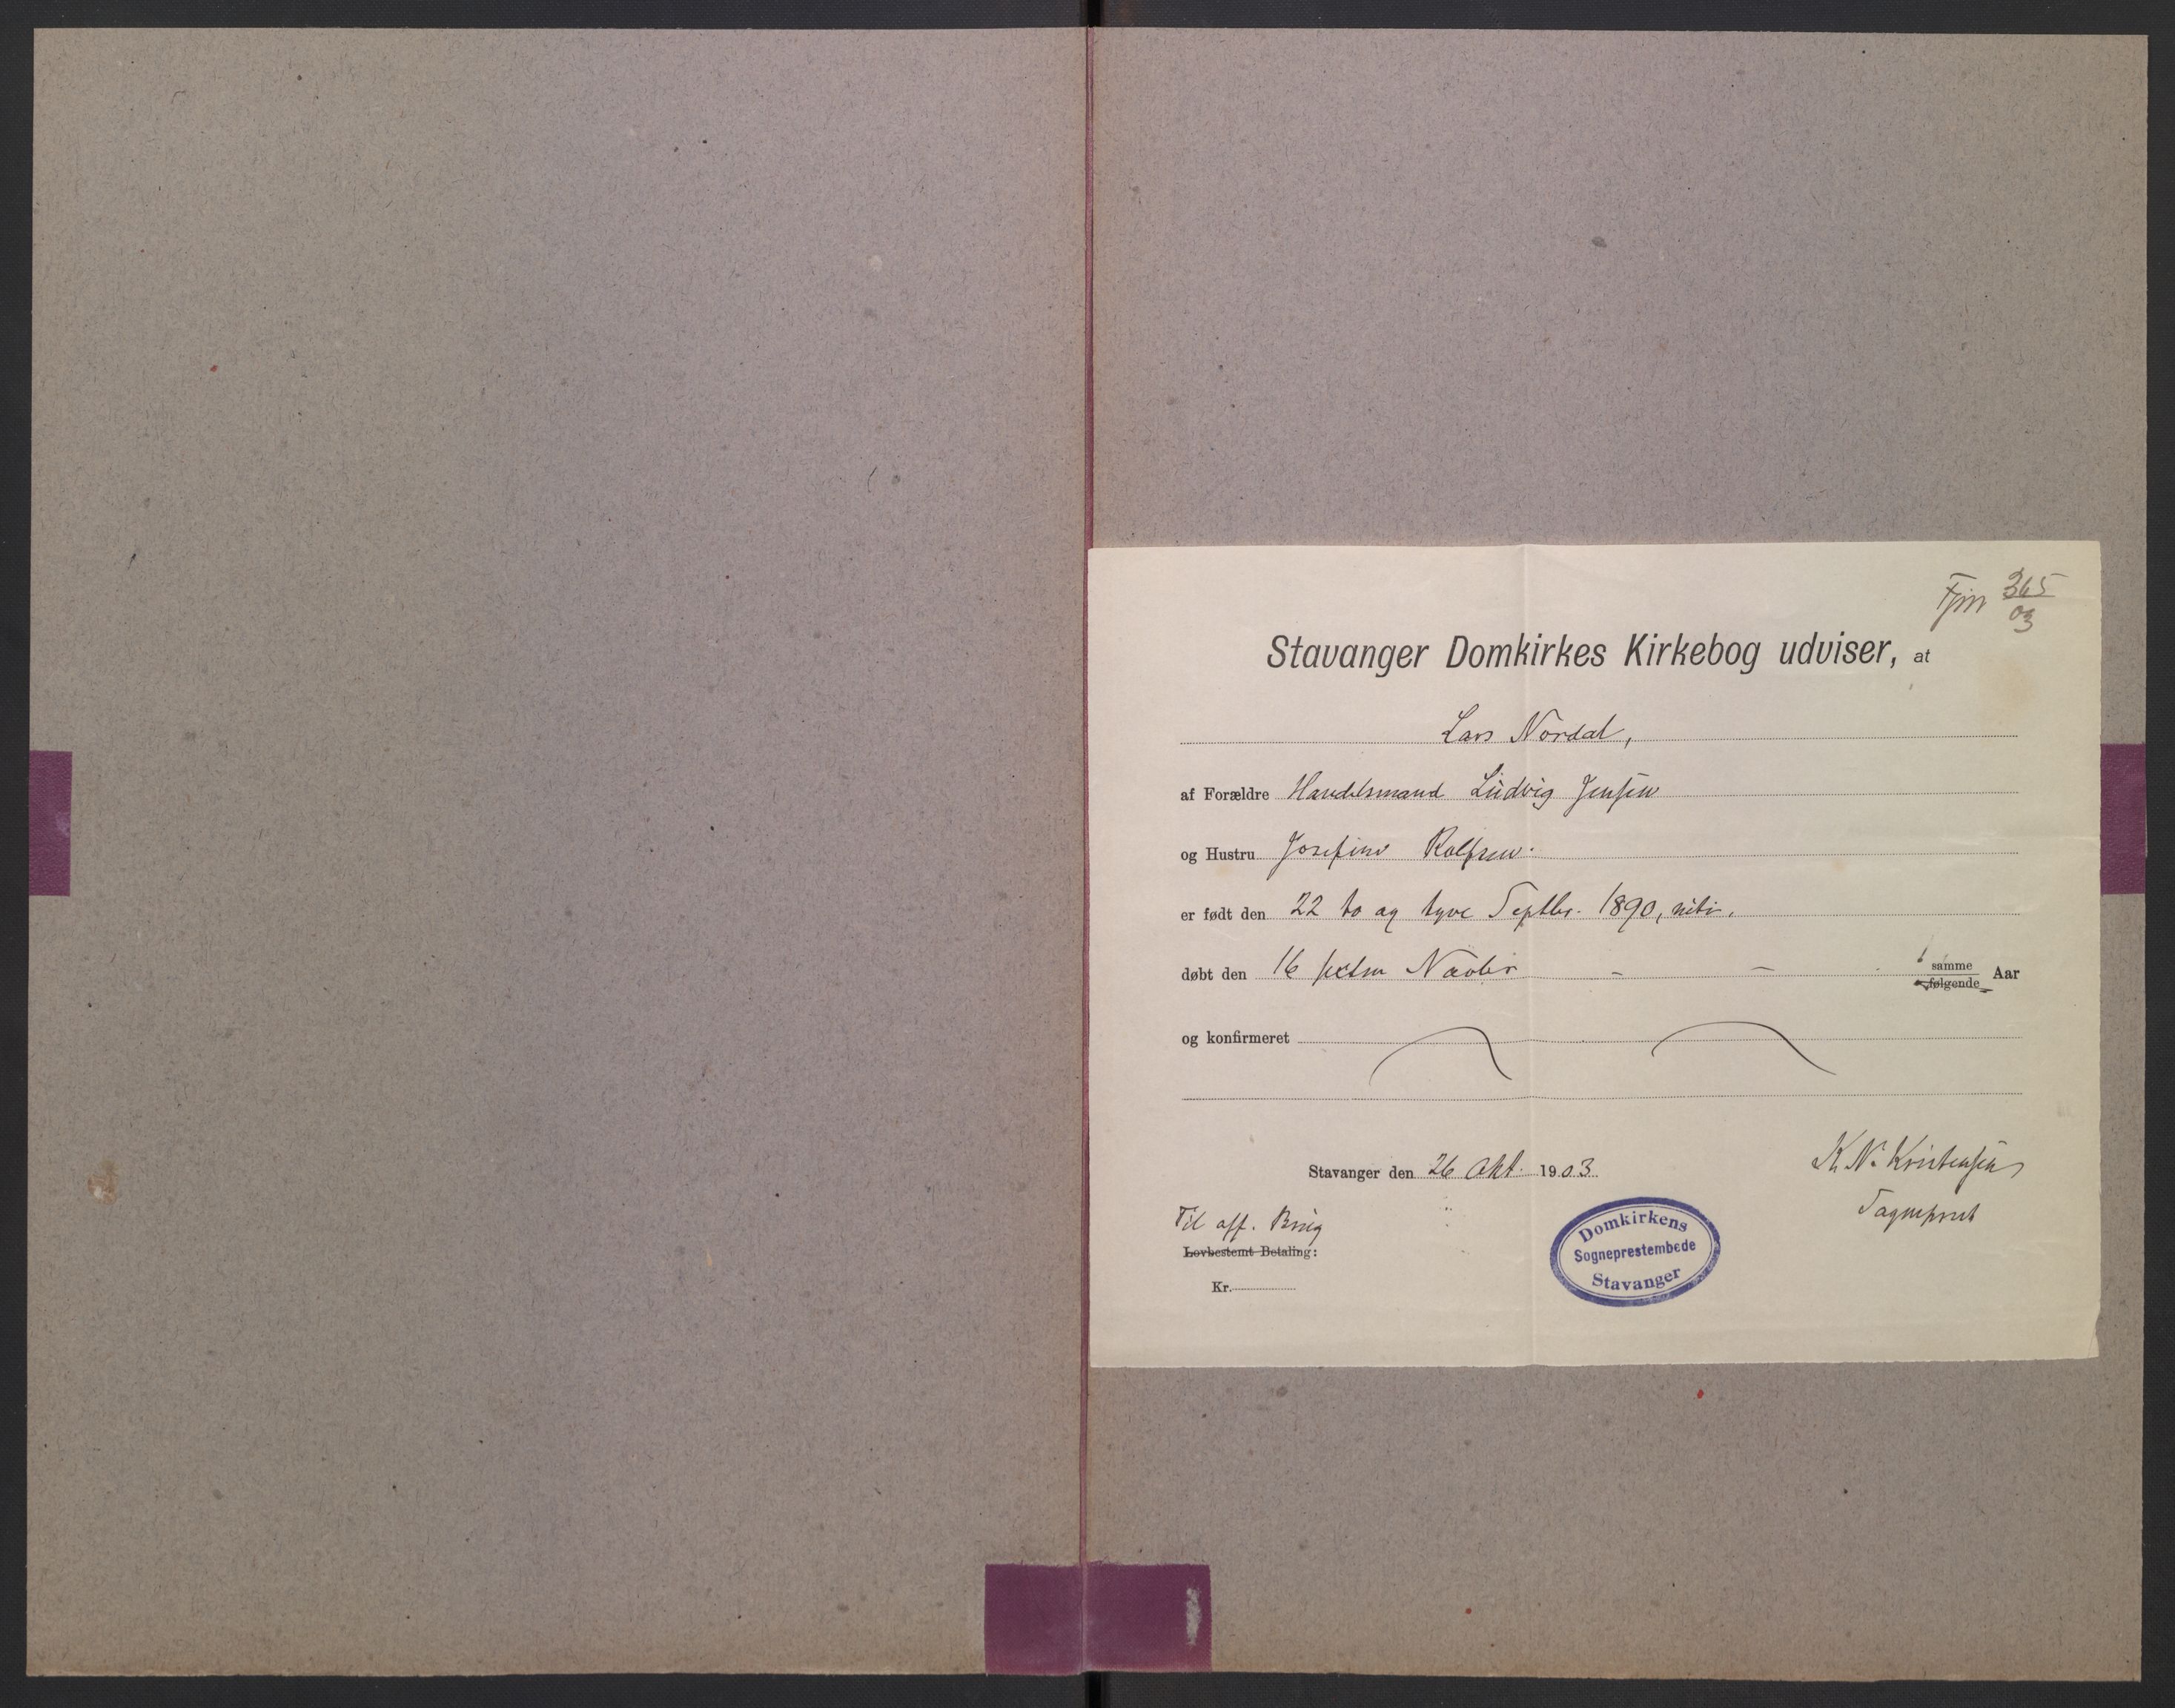 Fjm 365
03
Stavanger Domkirkes Kirkebog udviser, at
Lars Nordal,
af Forældre Handelsmand Ludvig Jensen
og Hustru Josefine Rolfsen.
er født den 22 to og tyve Septbr. 1890, niti.
døbt den 16 sexten Novbr — — samme Aar
følgende
og konfirmeret
Stavanger den 26 Okt. 1903.
K. N. Kristensen
Sogneprest
Til off. Brug
Lovbestemt Betaling:
Kr.
Domkirkens
Sogneprestembede
Stavanger